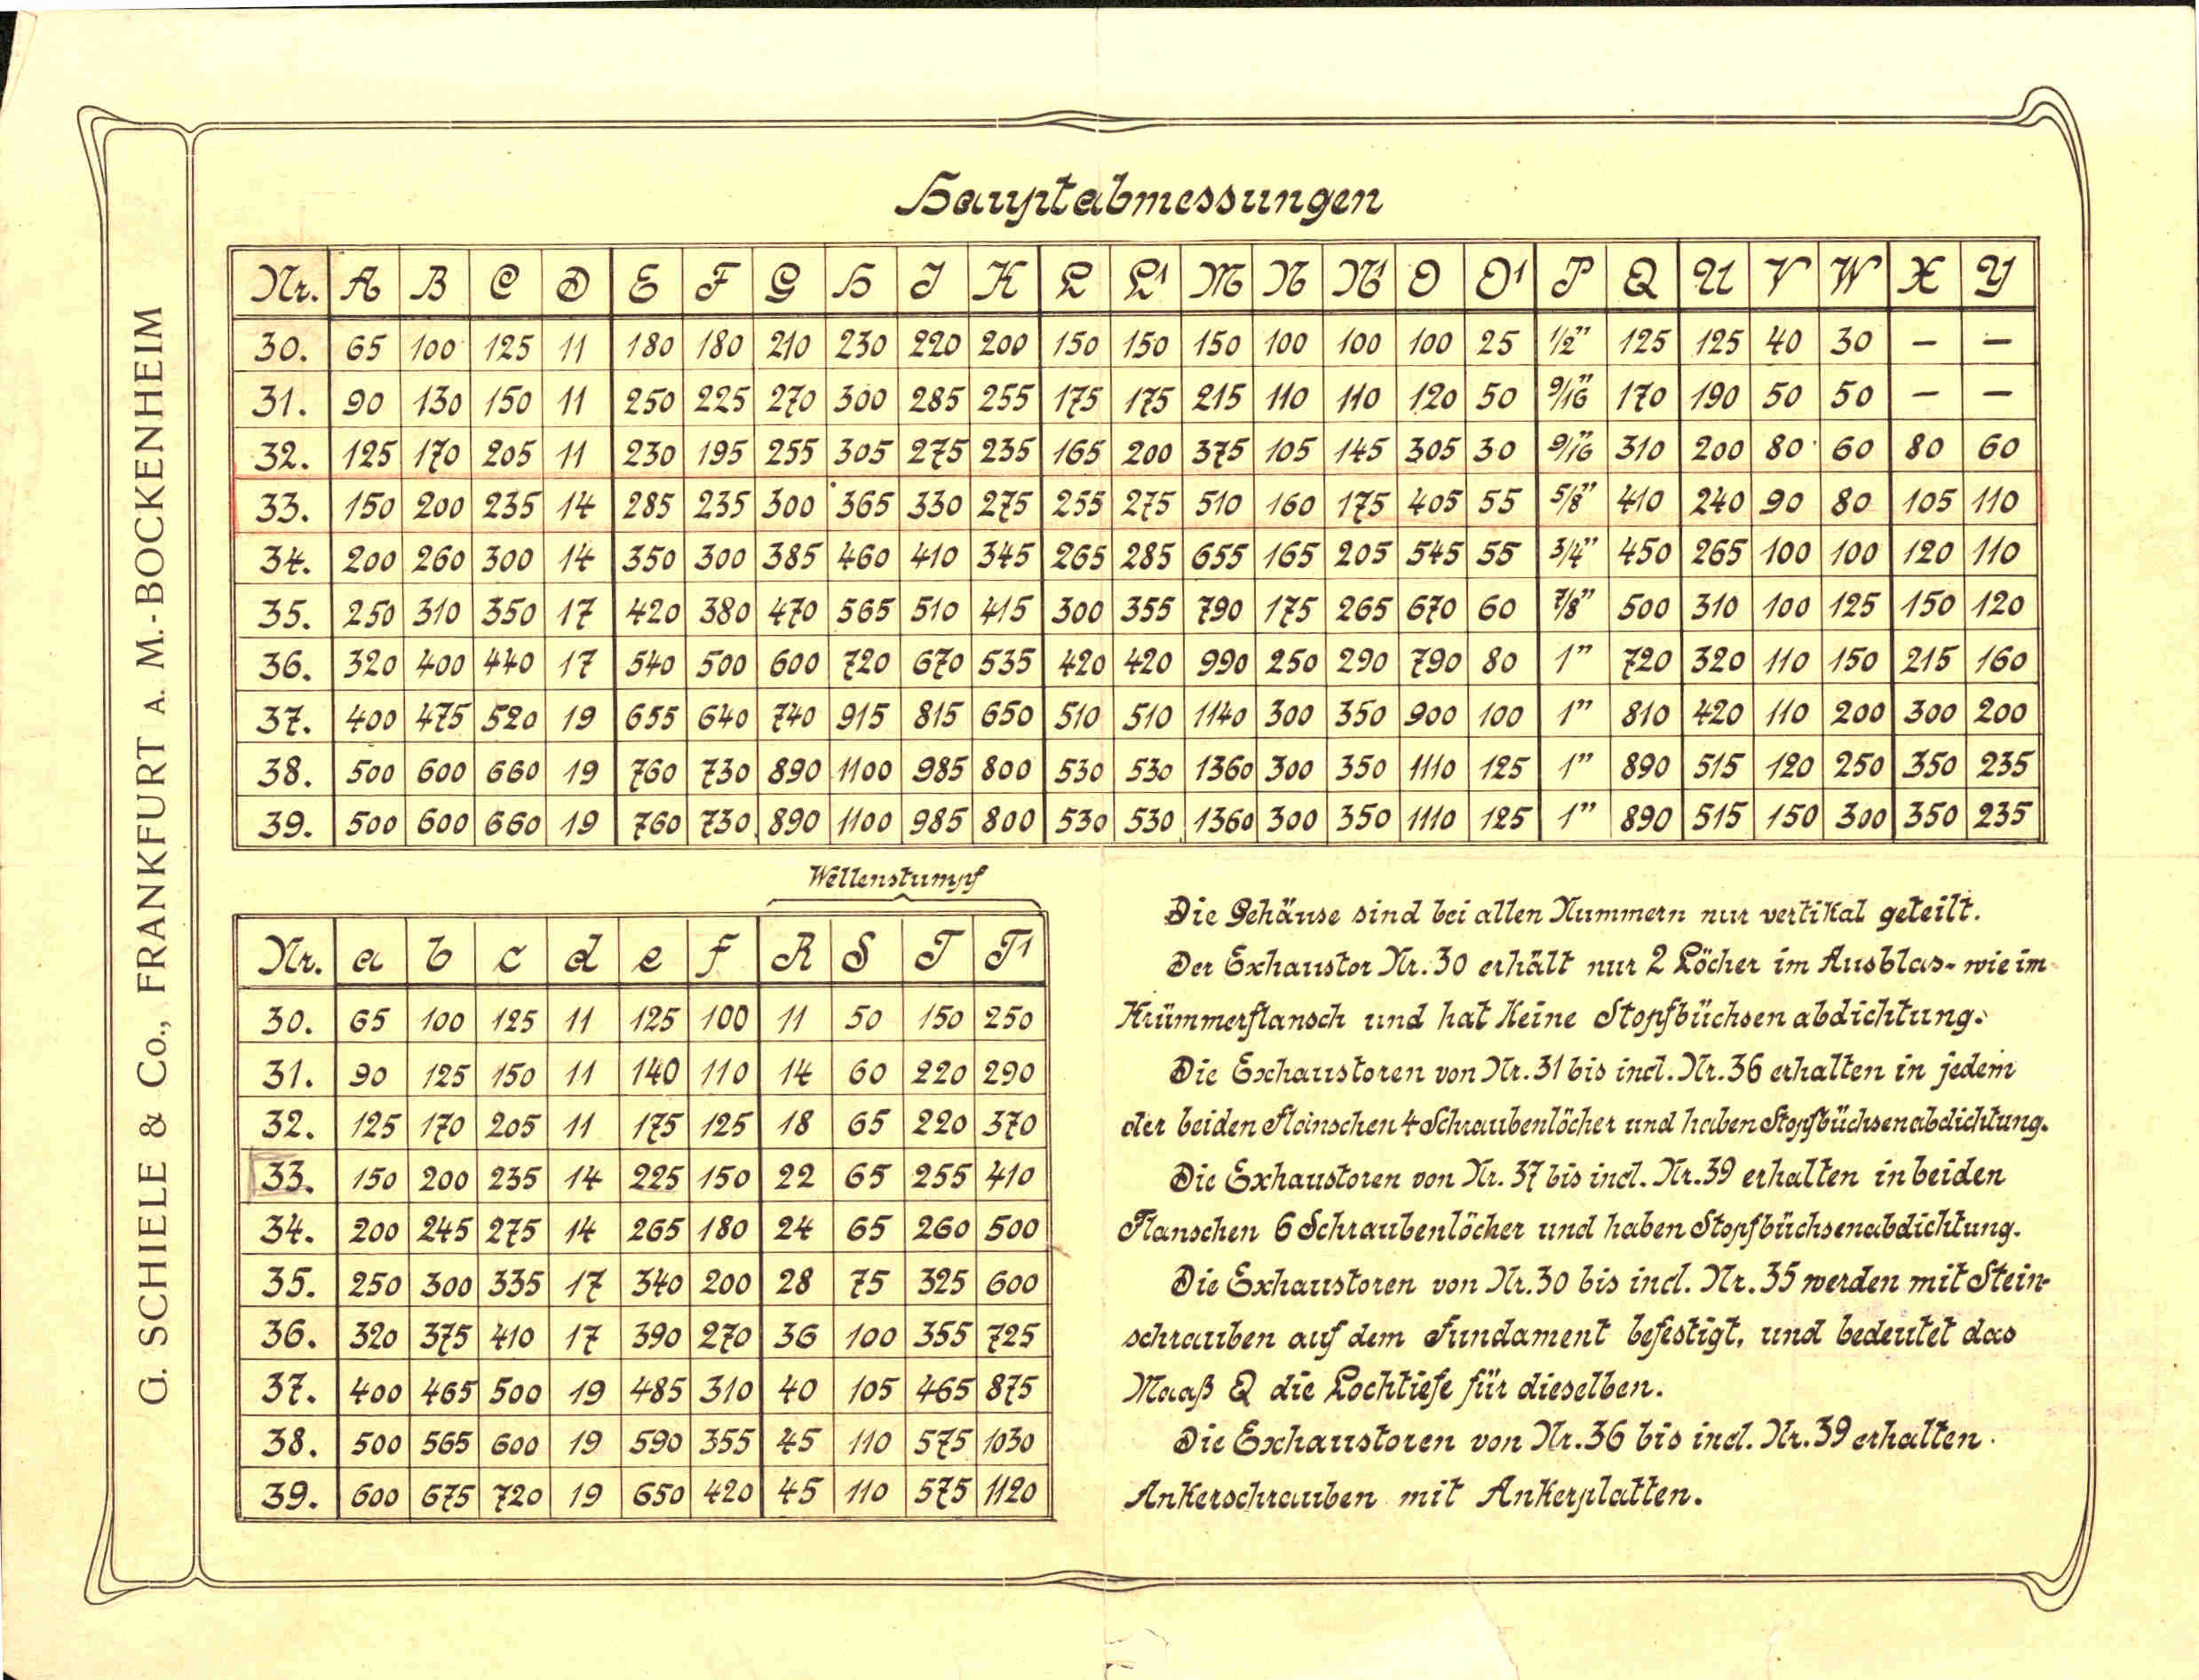 G. SCHIELE & Co., FRANKFURT A. M.-BOCKENHEIM
Hauptabmessungen
Nr. A B C D E F G H J K L L¹ M N N¹ O O¹ P Q U V W X Y
30. 65 100 125 11 180 180 210 230 220 200 150 150 150 100 100 100 25 1/2" 125 125 40 30 — —
31. 90 130 150 11 250 225 270 300 285 255 175 175 215 110 110 120 50 9/16" 170 190 50 50 — —
32. 125 170 205 11 230 195 255 305 275 235 165 200 375 105 145 305 30 9/16" 310 200 80 60 80 60
33. 150 200 235 14 285 235 300 365 330 275 255 275 510 160 175 405 55 5/8" 410 240 90 80 105 110
34. 200 260 300 14 350 300 385 460 410 345 265 285 655 165 205 545 55 3/4" 450 265 100 100 120 110
35. 250 310 350 17 420 380 470 565 510 415 300 355 790 175 265 670 60 7/8" 500 310 100 125 150 120
36. 320 400 440 17 540 500 600 720 670 535 420 420 990 250 290 790 80 1" 720 320 110 150 215 160
37. 400 475 520 19 655 640 740 915 815 650 510 510 1140 300 350 900 100 1" 810 420 110 200 300 200
38. 500 600 660 19 760 730 890 1100 985 800 530 530 1360 300 350 1110 125 1" 890 515 120 250 350 235
39. 500 600 660 19 760 730 890 1100 985 800 530 530 1360 300 350 1110 125 1" 890 515 150 300 350 235
Wellenstumpf
Nr. a b c d e f R S T T¹
30. 65 100 125 11 125 100 11 50 150 250
31. 90 125 150 11 140 110 14 60 220 290
32. 125 170 205 11 175 125 18 65 220 370
33. 150 200 235 14 225 150 22 65 255 410
34. 200 245 275 14 265 180 24 65 260 500
35. 250 300 335 17 340 200 28 75 325 600
36. 320 375 410 17 390 270 36 100 355 725
37. 400 465 500 19 485 310 40 105 465 875
38. 500 565 600 19 590 355 45 110 575 1030
39. 600 675 720 19 650 420 45 110 575 1120
Die Gehäuse sind bei allen Nummern nur vertikal geteilt.
Der Exhaustor Nr. 30 erhält nur 2 Löcher im Ausblas- wie im
Krümmerflansch und hat keine Stopfbüchsenabdichtung.
Die Exhaustoren von Nr. 31 bis incl. Nr. 36 erhalten in jedem
der beiden Flanschen 4 Schraubenlöcher und haben Stopfbüchsenabdichtung.
Die Exhaustoren von Nr. 37 bis incl. Nr. 39 erhalten in beiden
Flanschen 6 Schraubenlöcher und haben Stopfbüchsenabdichtung.
Die Exhaustoren von Nr. 30 bis incl. Nr. 35 werden mit Stein-
schrauben auf dem Fundament befestigt, und bedeutet das
Maaß Q die Lochtiefe für dieselben.
Die Exhaustoren von Nr. 36 bis incl. Nr. 39 erhalten
Ankerschrauben mit Ankerplatten.